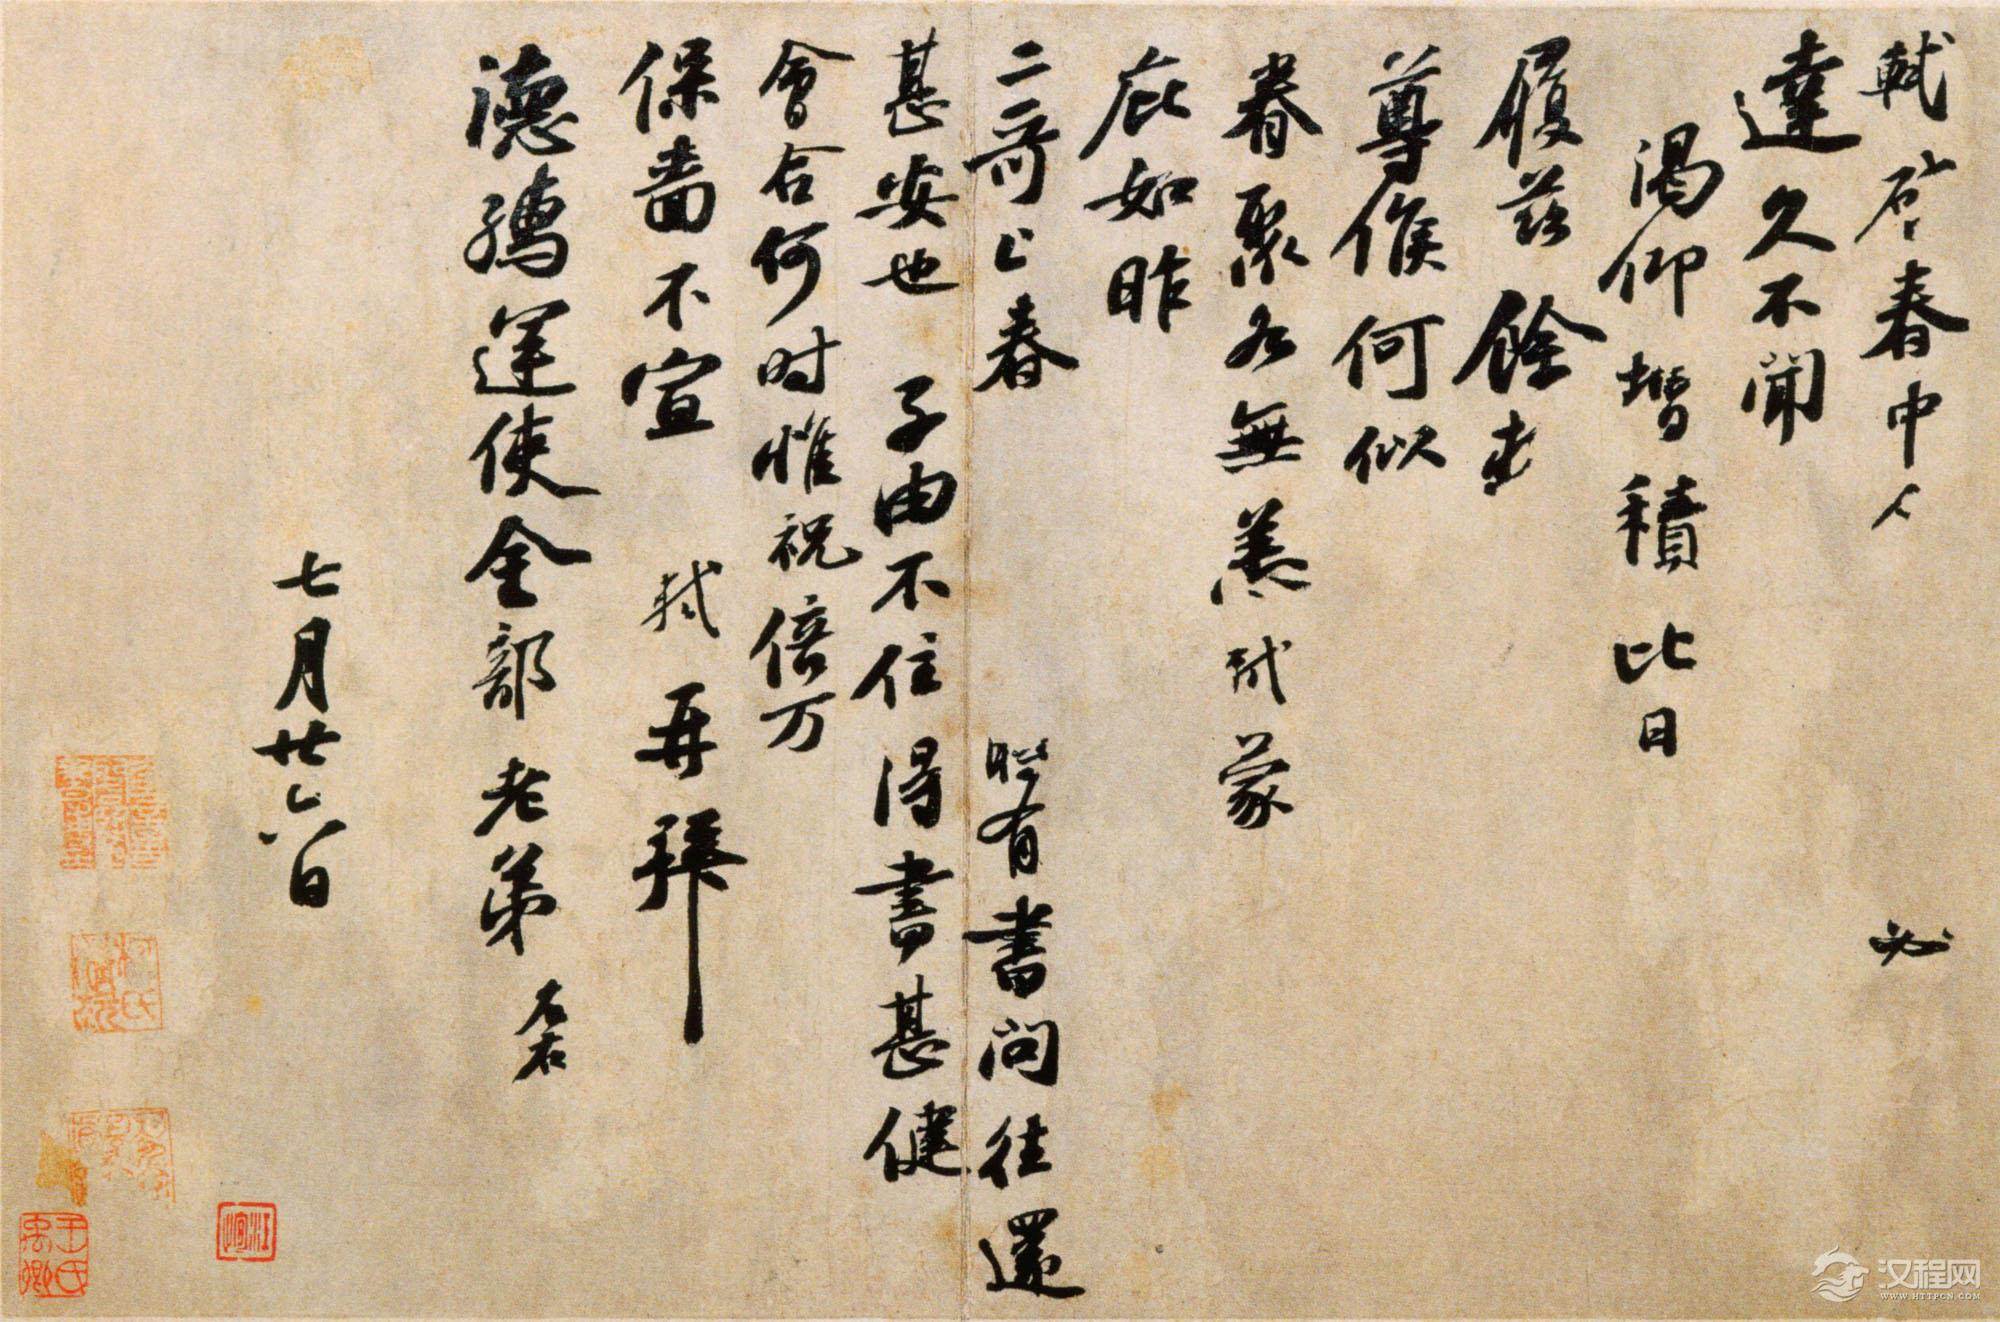 軾啓春中人 必
達久不聞
渴仰增積比日
履茲餘
尊候何似
眷聚各無恙軾蒙
庇如昨
二哥上春 時有書問往還
甚安也 子由不住得書甚健
會合何时惟祝倍万
保嗇不宣 軾再拜
德孺運使金部老弟左右
七月廿六日
江恂
王氏禹卿
汉程网
WWW.HTTPCN.COM